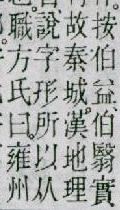 按伯益、伯翳實
故秦城漢地理
說字形所以从
職方氏曰雍州